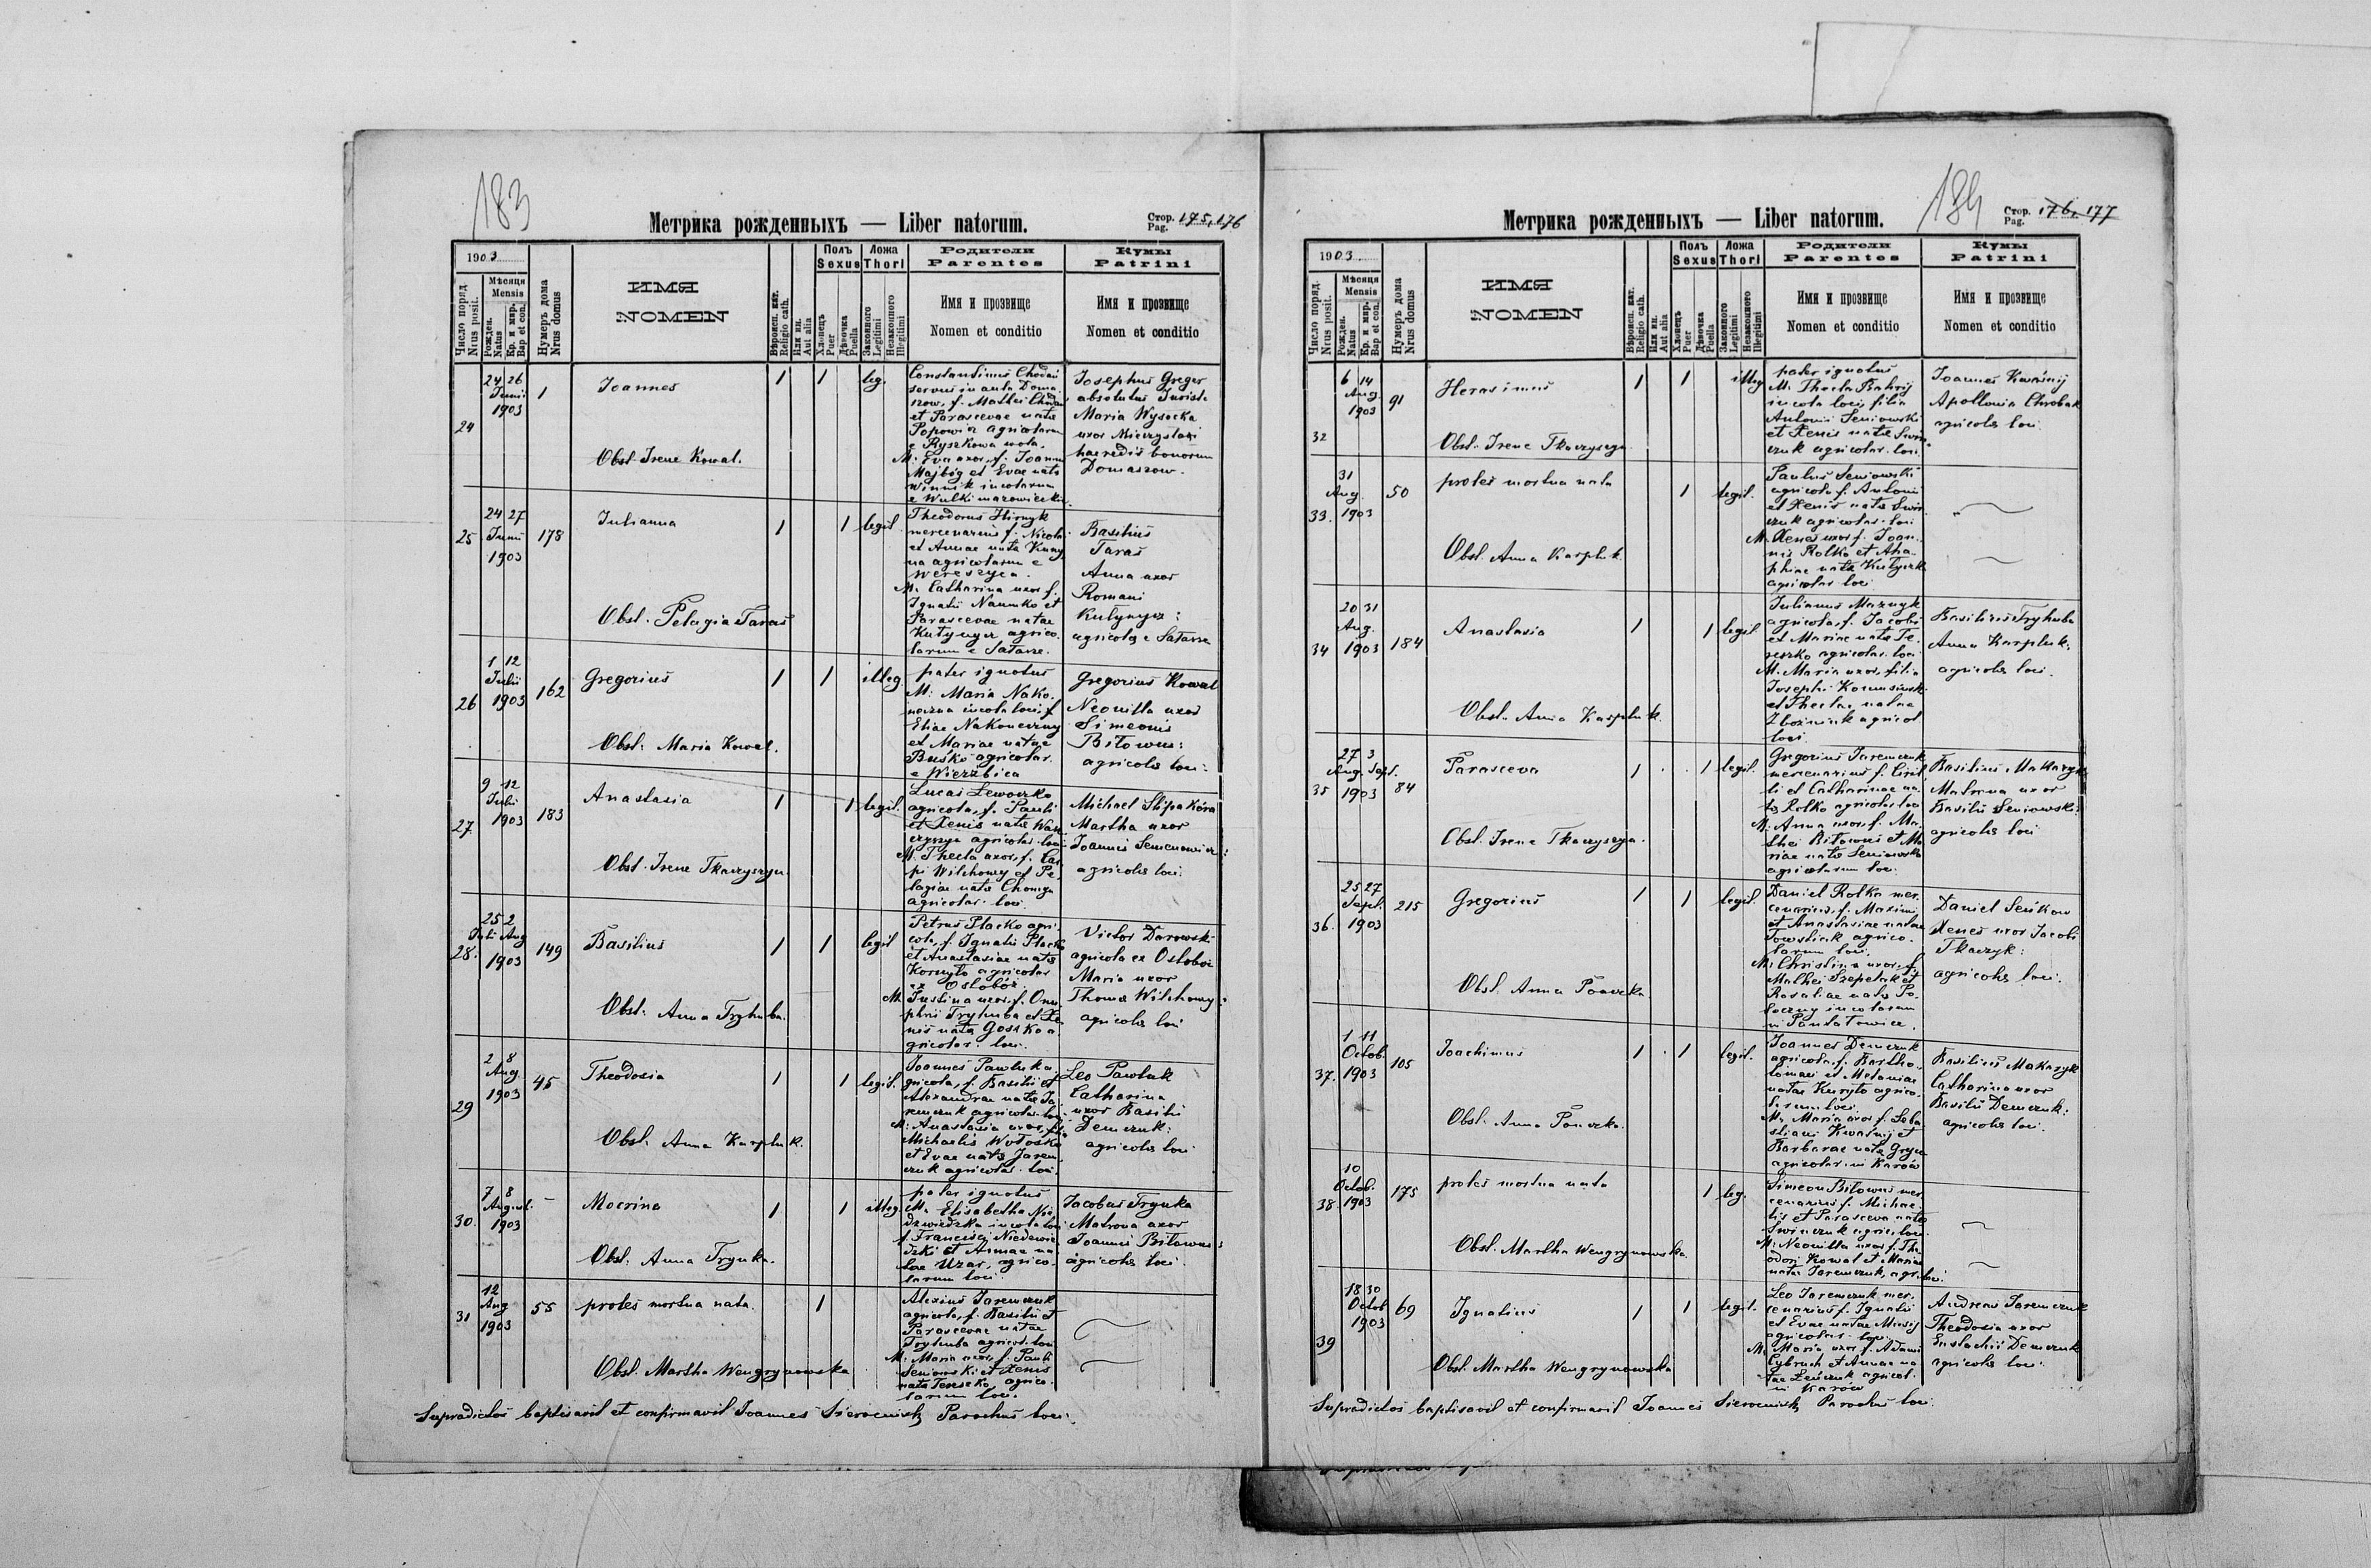 183
Метрика рожденныхъ — Liber natorum.
Стор. Pag. 175, 176
1903
Число поряд. Nrus posit.
Мѣсяця Mensis
Рожден. Natus
Кр. и мир. Bap et con.
Нумеръ дома Nrus domus
ИМЯ
NOMEN
Вѣроисп. кат. Religio cath.
Или ин. Aut alia
Полъ Sexus
Хлопецъ Puer
Дѣвочка Puella
Ложа Thori
Законного Legitimi
Незаконного Illegitimi
Родители
Parentes
Имя и прозвище
Nomen et conditio
Кумы
Patrini
Имя и прозвище
Nomen et conditio
24
24 26
Junii
1903
1
Joannes
1 1 leg.
Obst. Irene Kowal.
Constantinus
servus in aula Doma-
szow, f. Matthei
et Parascevae nata
Popowicz agricolarum
e Ryszkowa wola.
M: Eva uxor, f. Joannis
Majbóg et Evae nata
Winnik incolarum
e Wulki mazowiecka.
Josephus Greger
absolutus Jurista
Maria Wysocka
uxor Mieczyslai
haeredis bonorum
Domaszow.
25
24 27
Junii
1903
178
Julianna
1 1 legit.
Obst. Pelagia Taras
Theodorus Hirnyk
mercenarius f. Nicolai
et Annae nata
na agricolarum e
Wereszyca.
M: Catharina uxor f.
Ignatii Naumko et
Parascevae natae
Kutynycz agrico-
larum e Satarze.
Basilius
Taras
Anna uxor
Romani
Kutynycz:
agricolae e Satarze
26
1 12
Julii
1903
162
Gregorius
1 1 illeg
Obst: Maria Kowal.
pater ignotus
M: Maria Nako-
neczna incola loci, f.
Eliae Nakoneczny
et Mariae natae
Buśko agricolar.
e Wierzbica
Gregorius Kowal
Neonilla uxor
Simeonis
Bitowus:
agricolae loci.
27
9 12
Julii
1903
183
Anastasia
1 1 legit.
Obst. Irene Tkaczyszyn.
Lucas Lewoczko
agricola, f. Pauli
et Xeniae nata
agricolar. loci
M. Thecla uxor, f.
Wilchowy et Pe-
lagiae nata Chomyn
agricolar. loci.
Michael Slipakóra
Martha uxor
Joannis Semenowicz:
agricolae loci.
28.
25 2
Juli Aug
1903
149
Basilius
1 1 legit
Obst: Anna Tryhuba.
Petrus Placko agri-
cola, f. Ignatii Placko
et Anastasiae nata
Kornyto agricolar
ex Ostobóż.
M. Justina uxor, f. Onu-
phrii Tryhuba et Xe-
niae nata Goszko a-
gricolar. loci.
Victor Darowski
agricola ex Ostoboż
Maria uxor
Thomae Wilchowy:
agricolae loci
29
2 8
Aug
1903
45
Theodosia
1 1 legit.
Obst. Anna Karpluk.
Joannes Pawluk a-
gricola, f. Basilii et
Alexandrae nata Ja-
remczuk agricolar. loci
M: Anastasia uxor,
Michaelis Wotoszko
et Evae nata Jarem-
czuk agricolar. loci.
Leo Pawluk
Catharina
uxor Basilii
Demczuk:
agricolae loci
30.
7 8
August.
1903
–
Mocrina
1 1 illeg.
Obst: Anna Trynka.
pater ignotus
M. Elisabetha Nie-
dzwiedzka incola loci
f. Francisci Niedzwie-
dzki et Annae na-
tae Uzar, agrico-
larum loci
Jacobus Trynka
Matrona uxor
Joannis Bitowus:
agricolae loci.
31
12
Aug
1903
55
proles mortua nata.
1
Obst. Martha Wengrynowska
Alexius Jaremczuk
agricola, f. Basilii et
Parascevae natae
Tryhuba agricol. loci
M: Maria uxor, f. Pauli
Seniowski et Xeniae
nata Tereszko, agrico-
larum loci.
Supradictos baptisavit et confirmavit Joannes Parochus loci.
184
Метрика рожденныхъ — Liber natorum.
Стор. Pag. 176, 177
1903
Число поряд. Nrus posit.
Мѣсяця Mensis
Рожден. Natus
Кр. и мир. Bap et con.
Нумеръ дома Nrus domus
ИМЯ
NOMEN
Вѣроисп. кат. Religio cath.
Или ин. Aut alia
Полъ Sexus
Хлопецъ Puer
Дѣвочка Puella
Ложа Thori
Законного Legitimi
Незаконного Illegitimi
Родители
Parentes
Имя и прозвище
Nomen et conditio
Кумы
Patrini
Имя и прозвище
Nomen et conditio
32
6 14
Aug.
1903
91
Herasimus
1 1 illeg
Obst. Irene Tkaczyszyn
pater ignotus
M: Thecla
incola loci, filia
Antonii Seniowski
et Xeniae nata Swin-
czuk agricolar. loci.
Joannes Kwaśnij
Apollonia Chrobak
agricolae loci
33.
31
Aug.
1903
50
proles mortua nata
1 legit.
Obst. Anna Karpluk
Paulus Seniowski
agricola f. Antonii
et Xeniae nata Swin-
czuk agricolar. loci
M. Xenia uxor f. Joan-
nis Rolko et Aha-
phiae nata
agricolar loci
34
20 31
Aug.
1903
184
Anastasia
1 1 legit
Obst. Anna Karpluk.
Julianus Mazuryk
agricola, f. Jacobi
et Mariae nata Te-
reszko agricolar. loci
M. Maria uxor, filia
Josephi
et Theclae natae
agricol
loci
Basilius Tryhuba
Anna Karpluk:
agricolae loci.
35
27 3
Aug. Sept.
1903
84
Parasceva
1 1 legit.
Obst. Irene Tkaczyszyn.
Gregorius Jaremczuk
mercenarius f. Ciril-
li et Catharinae na-
ta Rolko agricolar. loci
M. Anna uxor, f. Ma-
thei Bitowus et Ma-
riae nata Seniowska
agricolarum loci.
Basilius Makaryk
Matrona uxor
Basilii Seniowski:
agricolae loci
36.
25 27
Sept.
1903
215
Gregorius
1 1 legit.
Obst. Anna Ponczka
Daniel Rolko mer-
cenarius, f. Maximi
et Anastasiae natae
Towstiuk agrico-
larum loci.
M: Christina uxor, f.
Mathei Szepeluk et
Rosaliae nata Po-
incolarum
in
Daniel Seńkow
Xenia uxor Jacobi
Tkaczyk:
agricolae loci.
37.
1 11
Octob.
1903
105
Joachimus
1 1 legit.
Obst. Anna Ponczka.
Joannes Demczuk
agricola, f. Bartho-
lomaei et Melaniae
natae Kuryto agrico-
larum loci.
M. Maria uxor f. Seba-
stiani Kwaśnij et
Barbarae nata Gryn
agricolar. in Karów
Basilius Makaryk
Catharina uxor
Basilii Demczuk:
agricolae loci.
38.
10
Octob.
1903
175
proles mortua nata
1 leg.
Obst. Martha Wengrynowska.
Simeon Bitowus mer-
cenarius f. Michae-
lis et Parasceva nata
Swinczuk agric. loci.
M: Neonilla uxor f. The-
odori Kowal et Mariae
natae Jaremczuk, agr. loci.
39
18 30
Octob
1903
69
Ignatius
1 1 legit.
Obst. Martha Wengrynowska
Leo Jaremczuk mer-
cenarius f. Ignatii
et Evae natae
agricolar. loci.
M. Maria uxor f. Adami
Cybruch et Annae na-
tae agricol.
in Karów
Andreas Jaremczuk
Theodosia uxor
Eustachii Demczuk
agricolae loci.
Supradictos baptisavit et confirmavit Joannes Parochus loci.